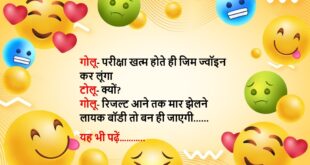 गोलू- परीक्षा खत्म होते ही जिम ज्वॉइन
कर लूंगा
टोलू- क्यों?
गोलू- रिजल्ट आने तक मार झेलने
लायक बॉडी तो बन ही जाएगी......
यह भी पढ़ें...........